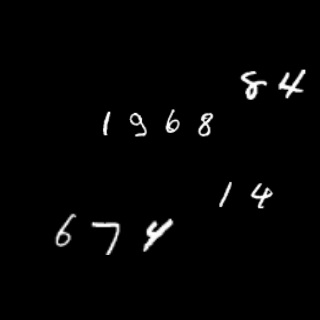 84
1968
14
674